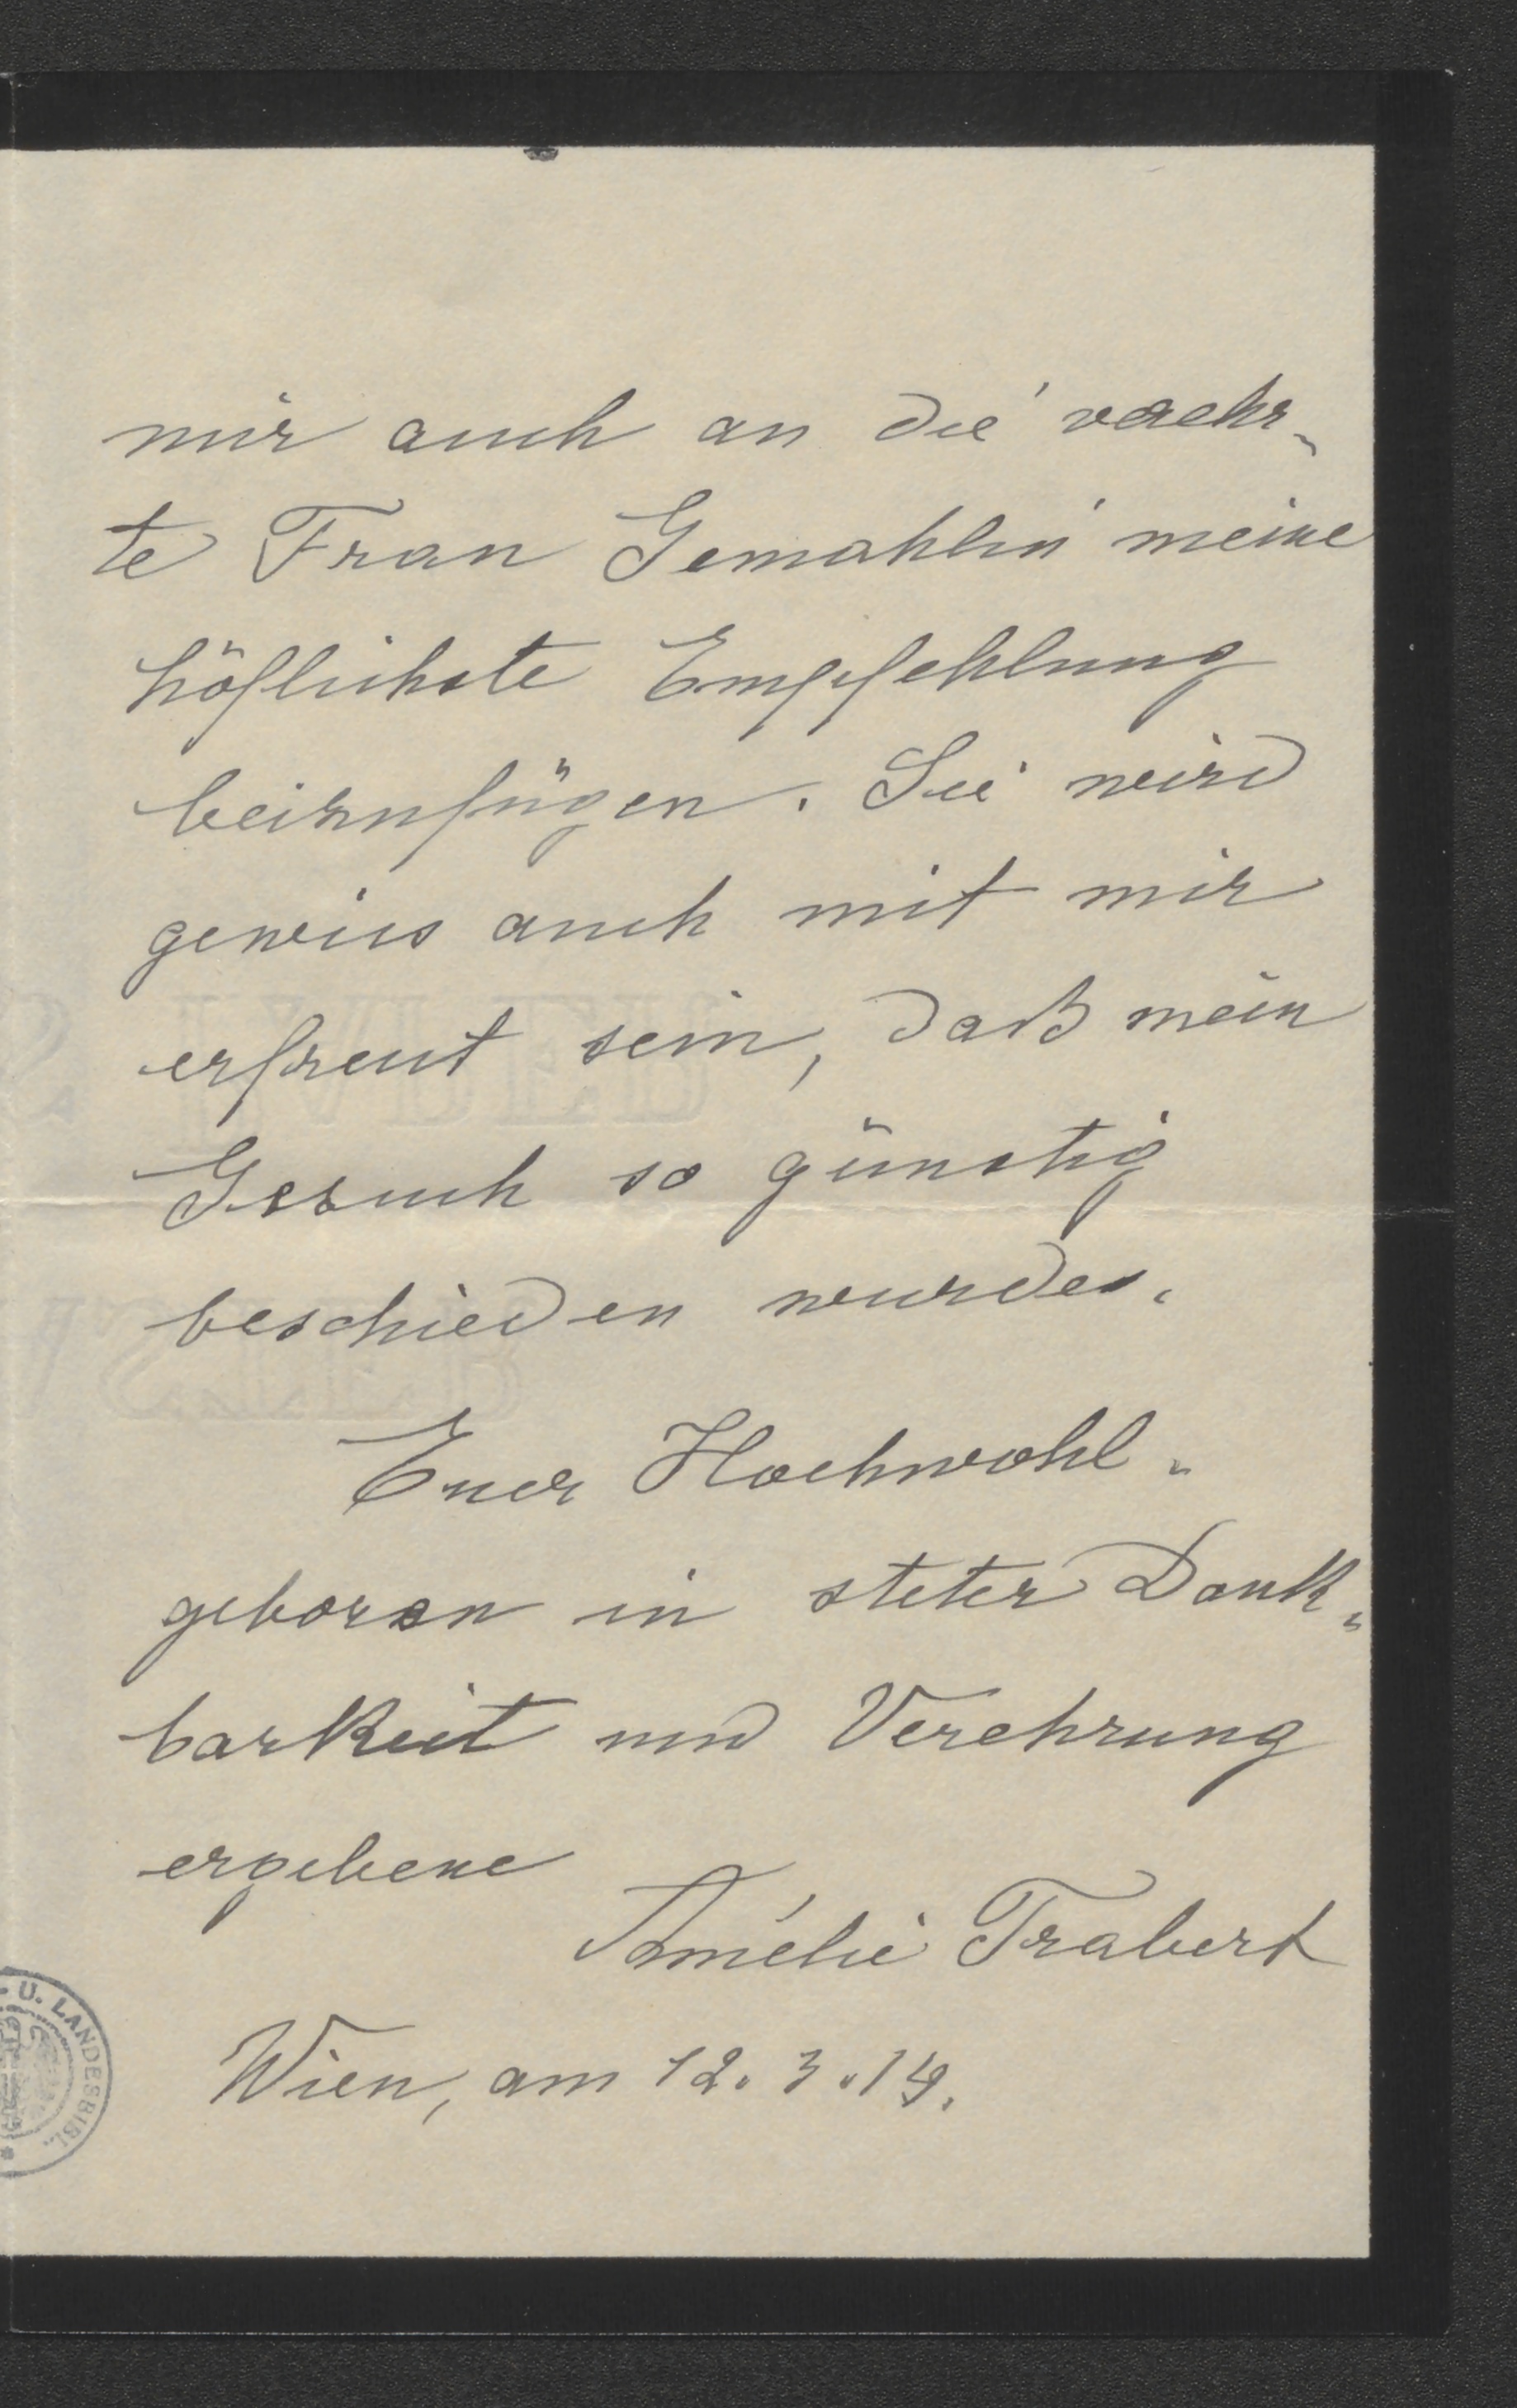 mir auch an die verehr-
te Frau Gemahlin meine
höflichste Empfehlung
beizufügen. Sie wird
gewiss auch mit mir
erfreut sein, daß mein
Gesuch so günstig
beschieden wurde.
Euer Hochwohl-
geboren in steter Dank-
barkeit und Verehrung
ergebene
Amélie Trabert
Wien, am 12. 3. 14.
U. LANDESBIBL.